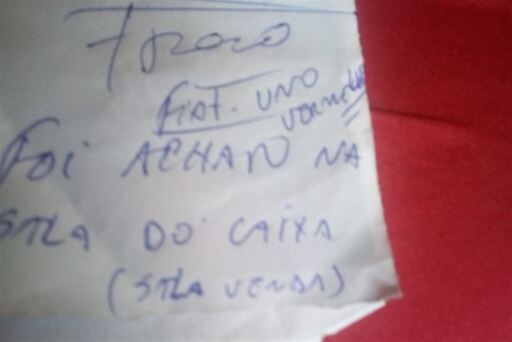 Troco
FIAT. UNO
VERMELHO
FOI ACHADO NA
SALA DO CAIXA
(SALA VENDA)